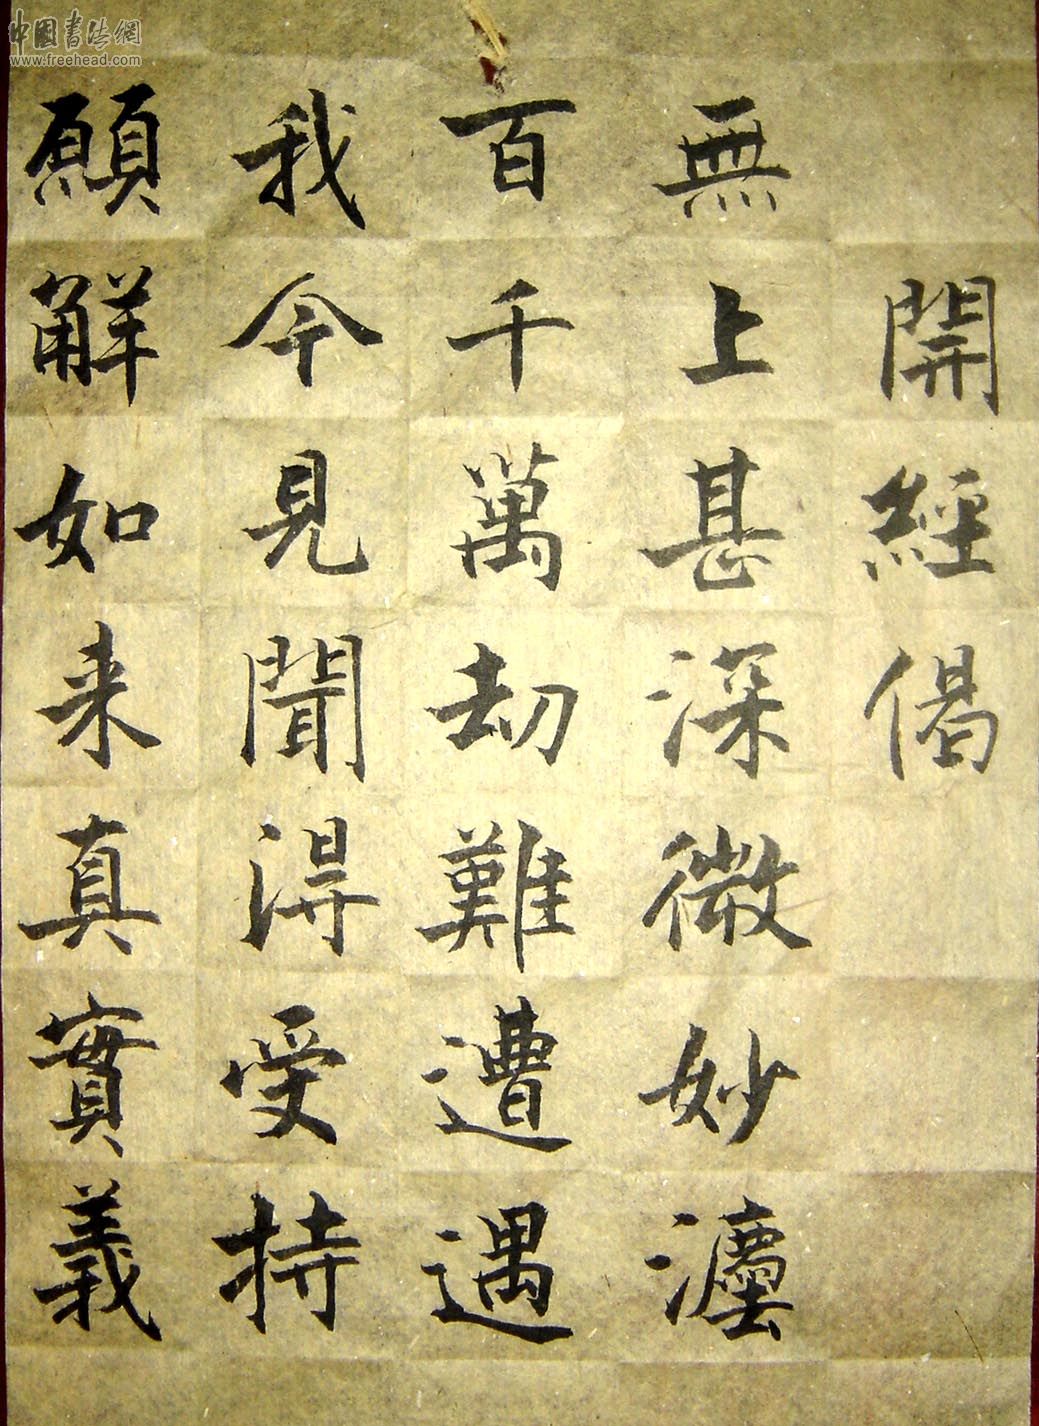 開經偈
無上甚深微妙灋
百千萬劫難遭遇
我今見聞淂受持
願解如来真實義
中国书法網
www.freehead.com